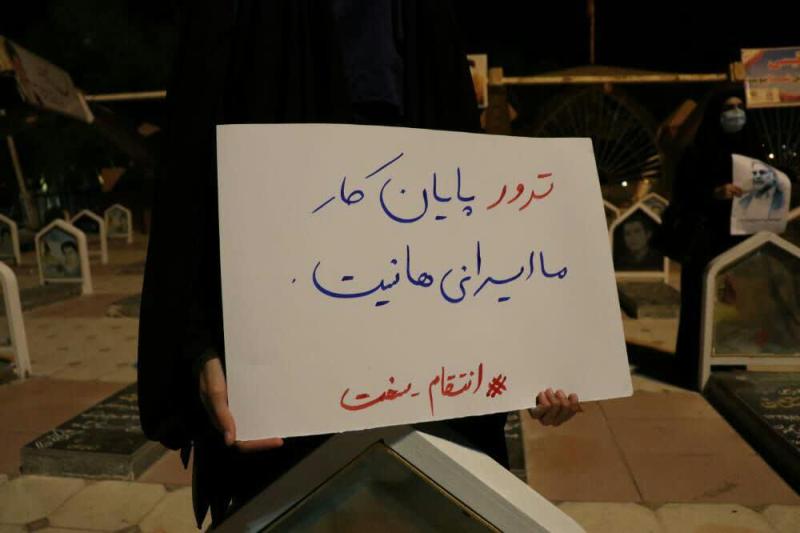 ترور پایان کار
ما ایرانی ها نیست.
#انتقام_سخت